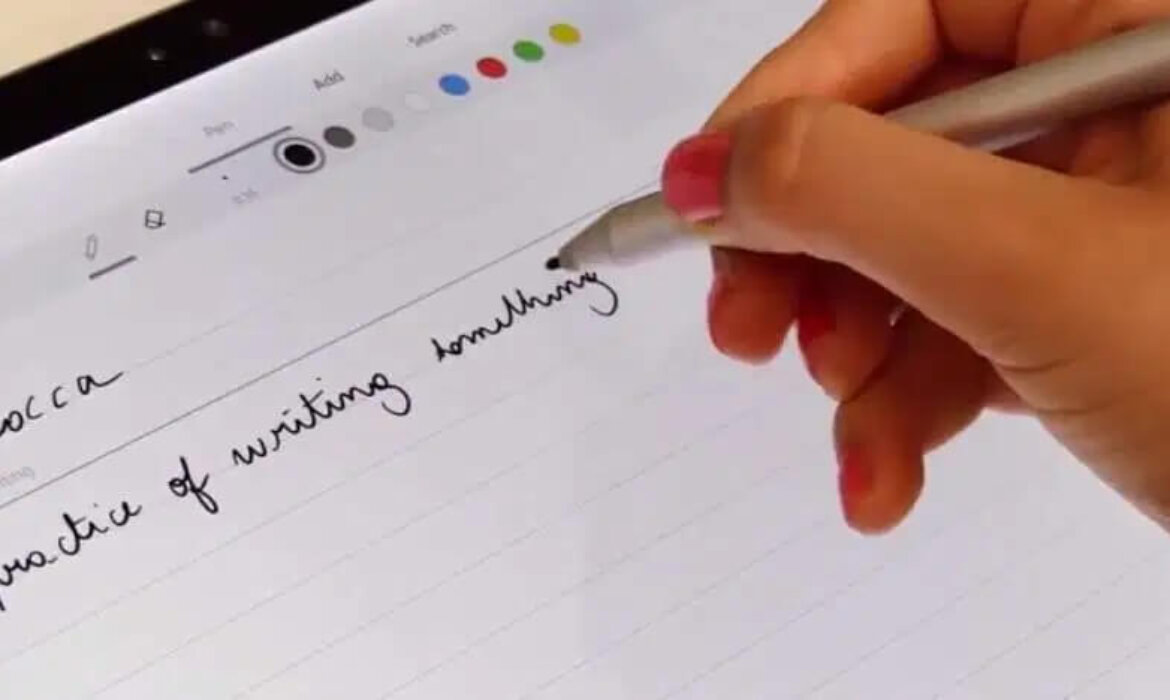 Search
Add
Pen
occa
practice of writing something